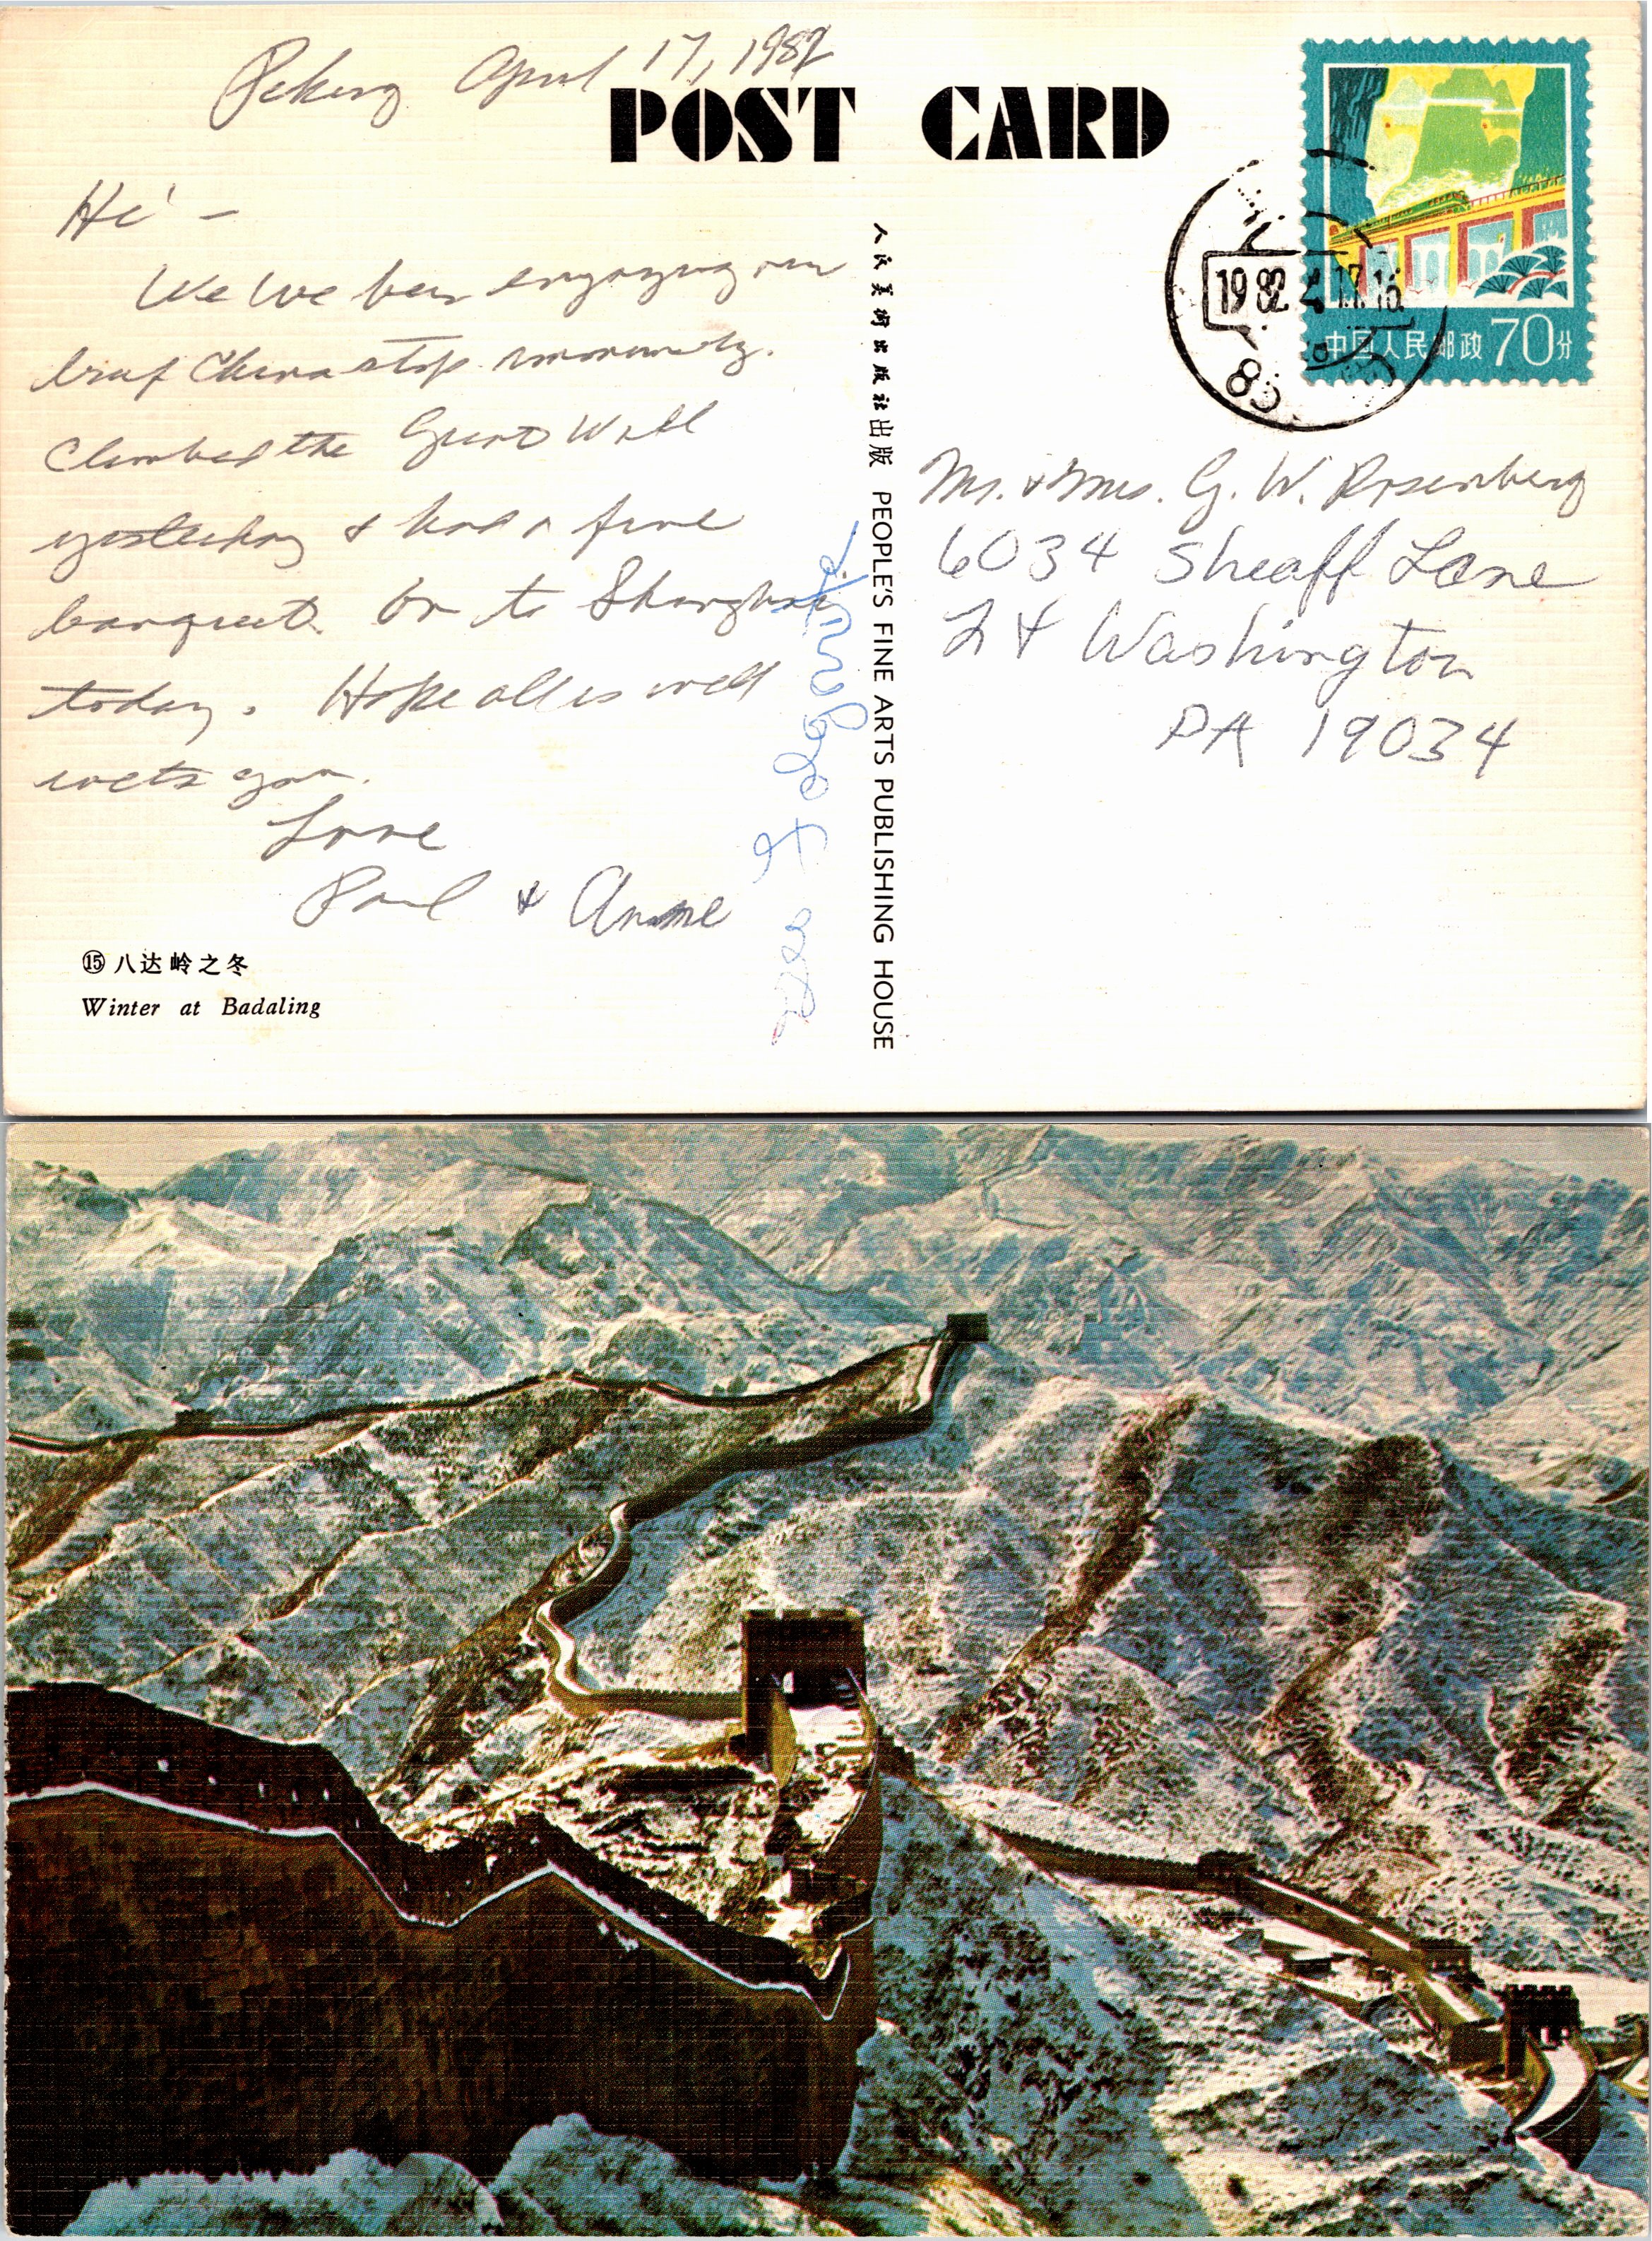 Peking April 17, 1982
POST CARD
Hi –
We've been enjoying our
brief China stop immensely.
Climbed the Great Wall
yesterday & had a fine
banquet. On to Shanghai
today. Hope all is well
with you.
Love
Paul & Anne
⑮ 八达岭之冬
Winter at Badaling
人民美術出版社出版 PEOPLE'S FINE ARTS PUBLISHING HOUSE
中国人民邮政 70分
1982 4 17.16
Mr. & Mrs. G. W. Rosenberg
6034 Sheaff Lane
Ft Washington
PA 19034